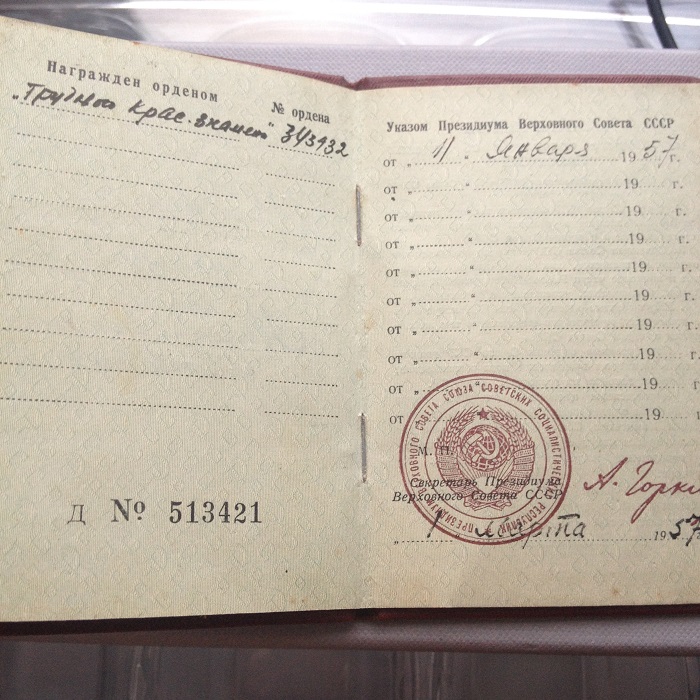 Награжден орденом
№ ордена
„Трудной Крас. знамени" 343132
Д № 513421
Указом Президиума Верховного Совета СССР
от „ 11 " Января 1957 г.
от „ " 19 г.
от „ " 19 г.
от „ " 19 г.
от „ " 19 г.
от „ " 19 г.
от „ " 19 г.
от „ " 19 г.
от „ " 19 г.
от „ 19 г.
ПРЕЗИДИУМ ВЕРХОВНОГО СОВЕТА СОЮЗА СОВЕТСКИХ СОЦИАЛИСТИЧЕСКИХ РЕСПУБЛИК
М. П.
Секретарь Президиума
Верховного Совета СССР
А. Горки
„ 1 марта 1957